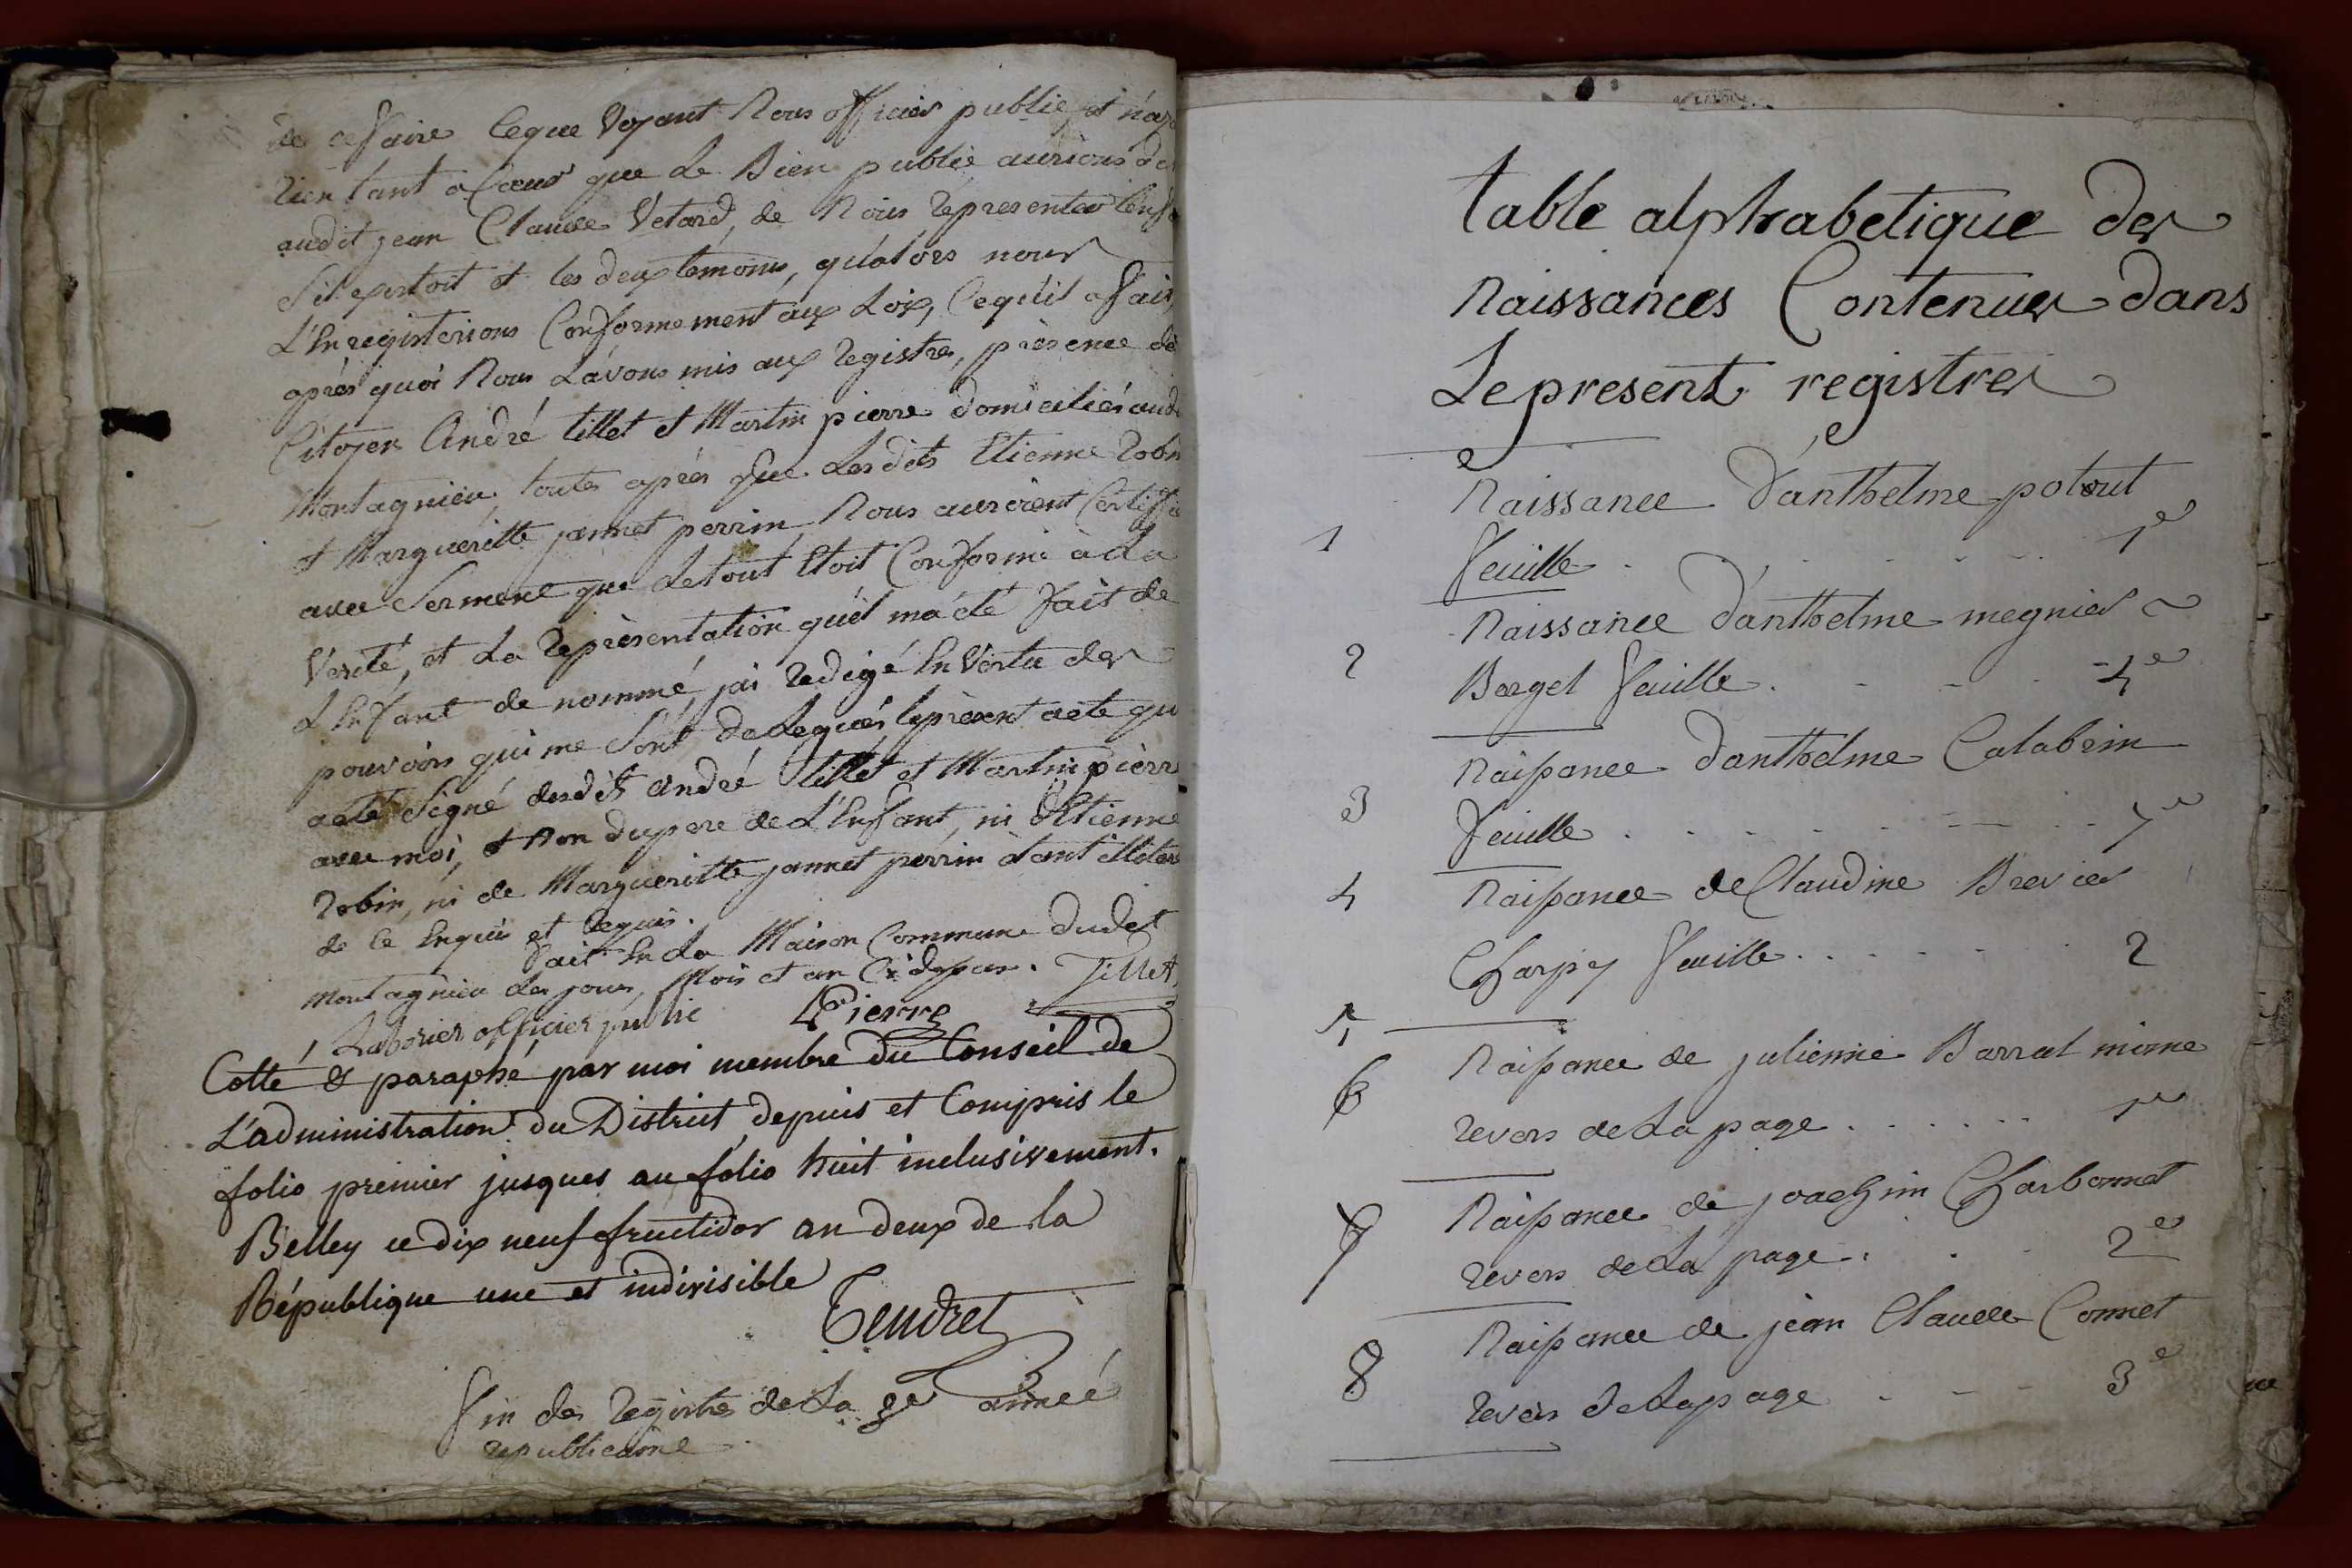 de ce faire ceque Voyant Nous officier public et n'ay
rien tant a Cœur que Le Bien public aurions
audit jean Claude Vetard, de Nous representer l'enf
s'il existoit et les deux temoins, qu'alors nous
L'Enregisterions Conformement aux Loix, Cequ'il a fait,
après quoi Nous L'avons mis aux registres, présence de
Citoyen André tillet et Martin pierre domiciliés aud
Montagnieu, toutes après que Lesdits Etienne Robin
et Marguéritte jannet perrin Nous auroient Certiffié
avec Serment que Letout Etoit Conforme à La
Verité, et La représentation qu'il m'a été fait de
L'Enfant de nommé, j'ai redigé En Vertu des
pouvoirs qui me Sont Delegués, leprésent acte qu
a été Signé desdits André tillet et Martin pierre
avec moi, et Non dupere de L'Enfant, ni d'Etienne
Robin, ni de Margueritte jannet perrin étant illiterés
de Ce Enquis et Requis.
fait En La Maison Commune dudit
Montagnieu Les jour, Mois et an Cidessus. Tillet
Laborier officier public Pierre
Cotté & paraphé par moi membre du Conseil de
L'administration du District depuis et Compris le
folio premier jusques au folio huit inclusivement.
Belley ce dix neuf fructidor an deux de la
République une et indivisible
Tendret
fin des Registres de La 2e année
republicaine
table alphabetique des
Naissances Contenues dans
Lepresent registres
Naissance d'anthelme potout
1 feuille . . . . . 1e
Naissance d'anthelme megnier
2 Berget feuille . - - . 4e
Naissance d'anthelme Calabrin
3 feuille . . . . . . 7e
4 Naissance de Claudine Brevier
Charpy feuille . . . . . 2
5
Naissance de julienne Barrat mime
6 revers de La page . . . . . . 1e
Naissance de joachim Charbonnet
7 revers de La page . . . 2e
Naissance de jean Claude Connet
8 revers de Lapage . - - . 3e